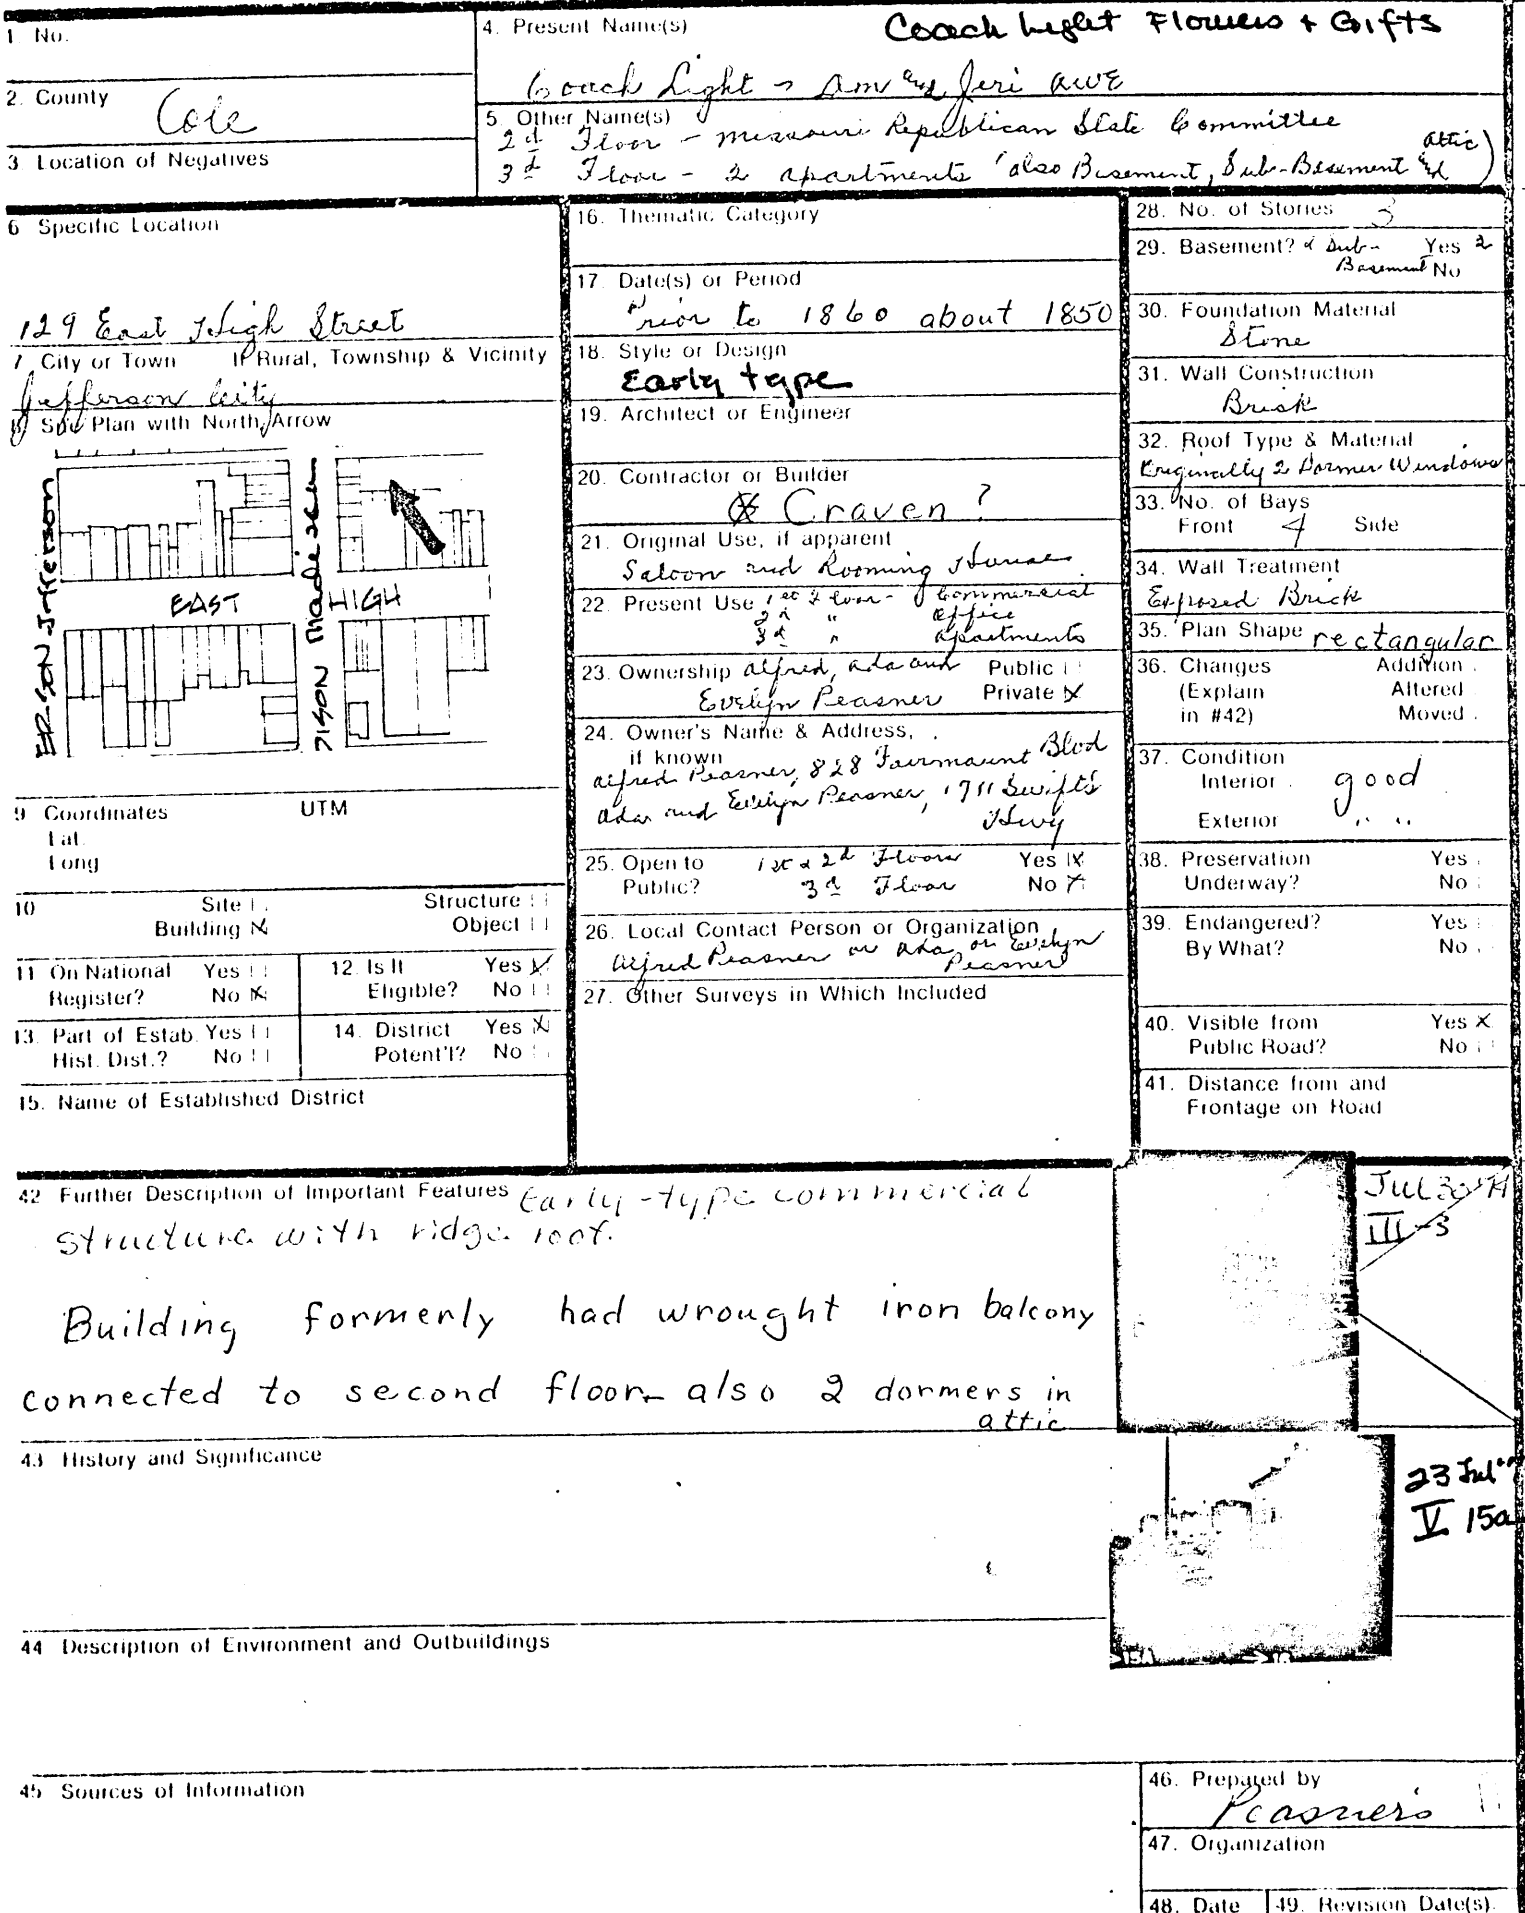 1. No.
4. Present Name(s)
Coach Light Flowers + Gifts
Coach Light - and Jeri AWE
2. County
Cole
5. Other Name(s)
2d Floor - Missouri Republican State Committee
3d Floor - 2 apartments (also Basement, Sub-Basement and attic)
3 Location of Negatives
6 Specific Location
129 East High Street
7. City or Town If Rural, Township & Vicinity
Jefferson City
8 Site Plan with North Arrow
JEFFERSON
Madison
EAST HIGH
9 Coordinates UTM
Lat.
Long
10 Site Structure
Building X Object
11 On National Register? Yes No X
12. Is It Eligible? Yes X No
13. Part of Estab. Hist. Dist.? Yes No
14. District Potent'l? Yes X No
15. Name of Established District
16. Thematic Category
17. Date(s) or Period
Prior to 1860 about 1850
18. Style or Design
Early type
19. Architect or Engineer
20. Contractor or Builder
Craven ?
21. Original Use, if apparent
Saloon and Rooming House
22. Present Use 1st Floor - Commercial
2d " Office
3d " Apartments
23. Ownership Alfred, Ada and Evelyn Peasner
Public
Private X
24. Owner's Name & Address,
if known
Alfred Peasner, 828 Fairmount Blvd
Ada and Evelyn Peasner, 1711 Swift's Hwy
25. Open to Public?
1st & 2d Floors Yes X
3d Floor No X
26. Local Contact Person or Organization
Alfred Peasner or Ada or Evelyn Peasner
27. Other Surveys in Which Included
28. No. of Stories 3
29. Basement? & Sub-Basement Yes 2
No
30. Foundation Material
Stone
31. Wall Construction
Brick
32. Roof Type & Material
Originally 2 Dormer Windows
33. No. of Bays
Front 4 Side
34. Wall Treatment
Exposed Brick
35. Plan Shape rectangular
36. Changes Addition
(Explain Altered
in #42) Moved
37. Condition
Interior good
Exterior " "
38. Preservation Yes
Underway? No
39. Endangered? Yes
By What? No
40. Visible from Yes X
Public Road? No
41. Distance from and
Frontage on Road
42 Further Description of Important Features Early-type commercial
structure with ridge roof.
Building formerly had wrought iron balcony
connected to second floor- also 2 dormers in
attic
III-3
43 History and Significance
23 Jul
V 15a
44 Description of Environment and Outbuildings
45 Sources of Information
46. Prepared by
Peasners
47. Organization
48. Date
49. Revision Date(s)